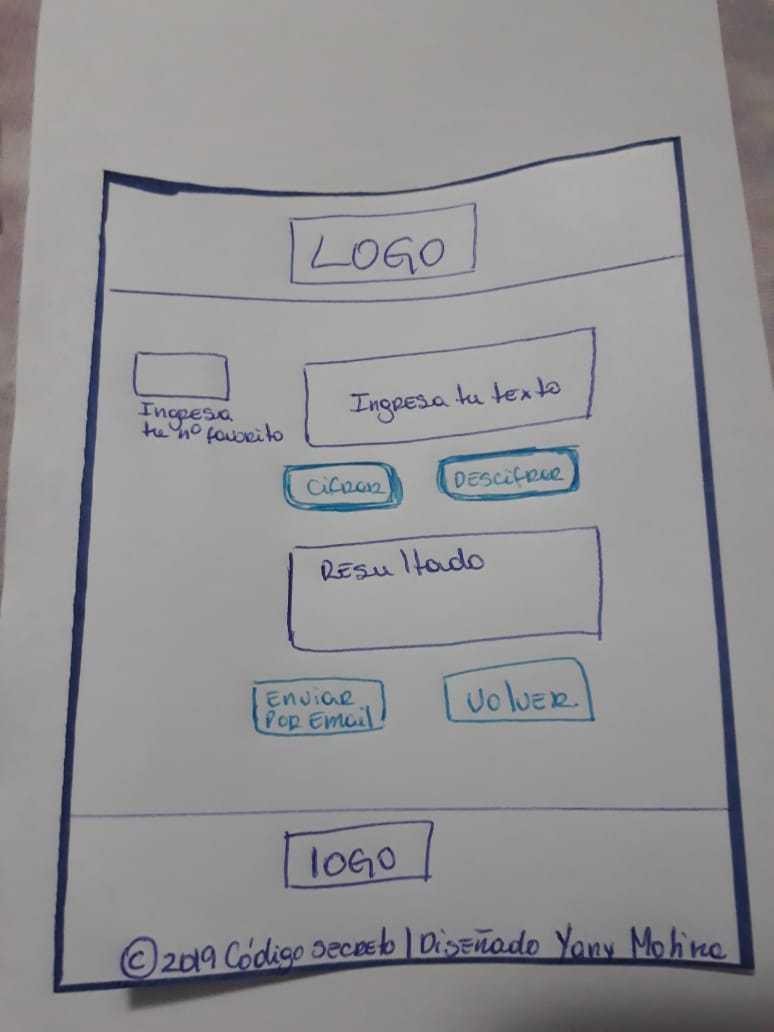 LOGO
Ingresa tu texto
Ingresa
tu nº favorito
CiFRAR
DESCiFRAR
RESultado
ENViAR
POR Email
VOlVER
lOGO
© 2019 Código SECREto | DisEÑado Yany Molina